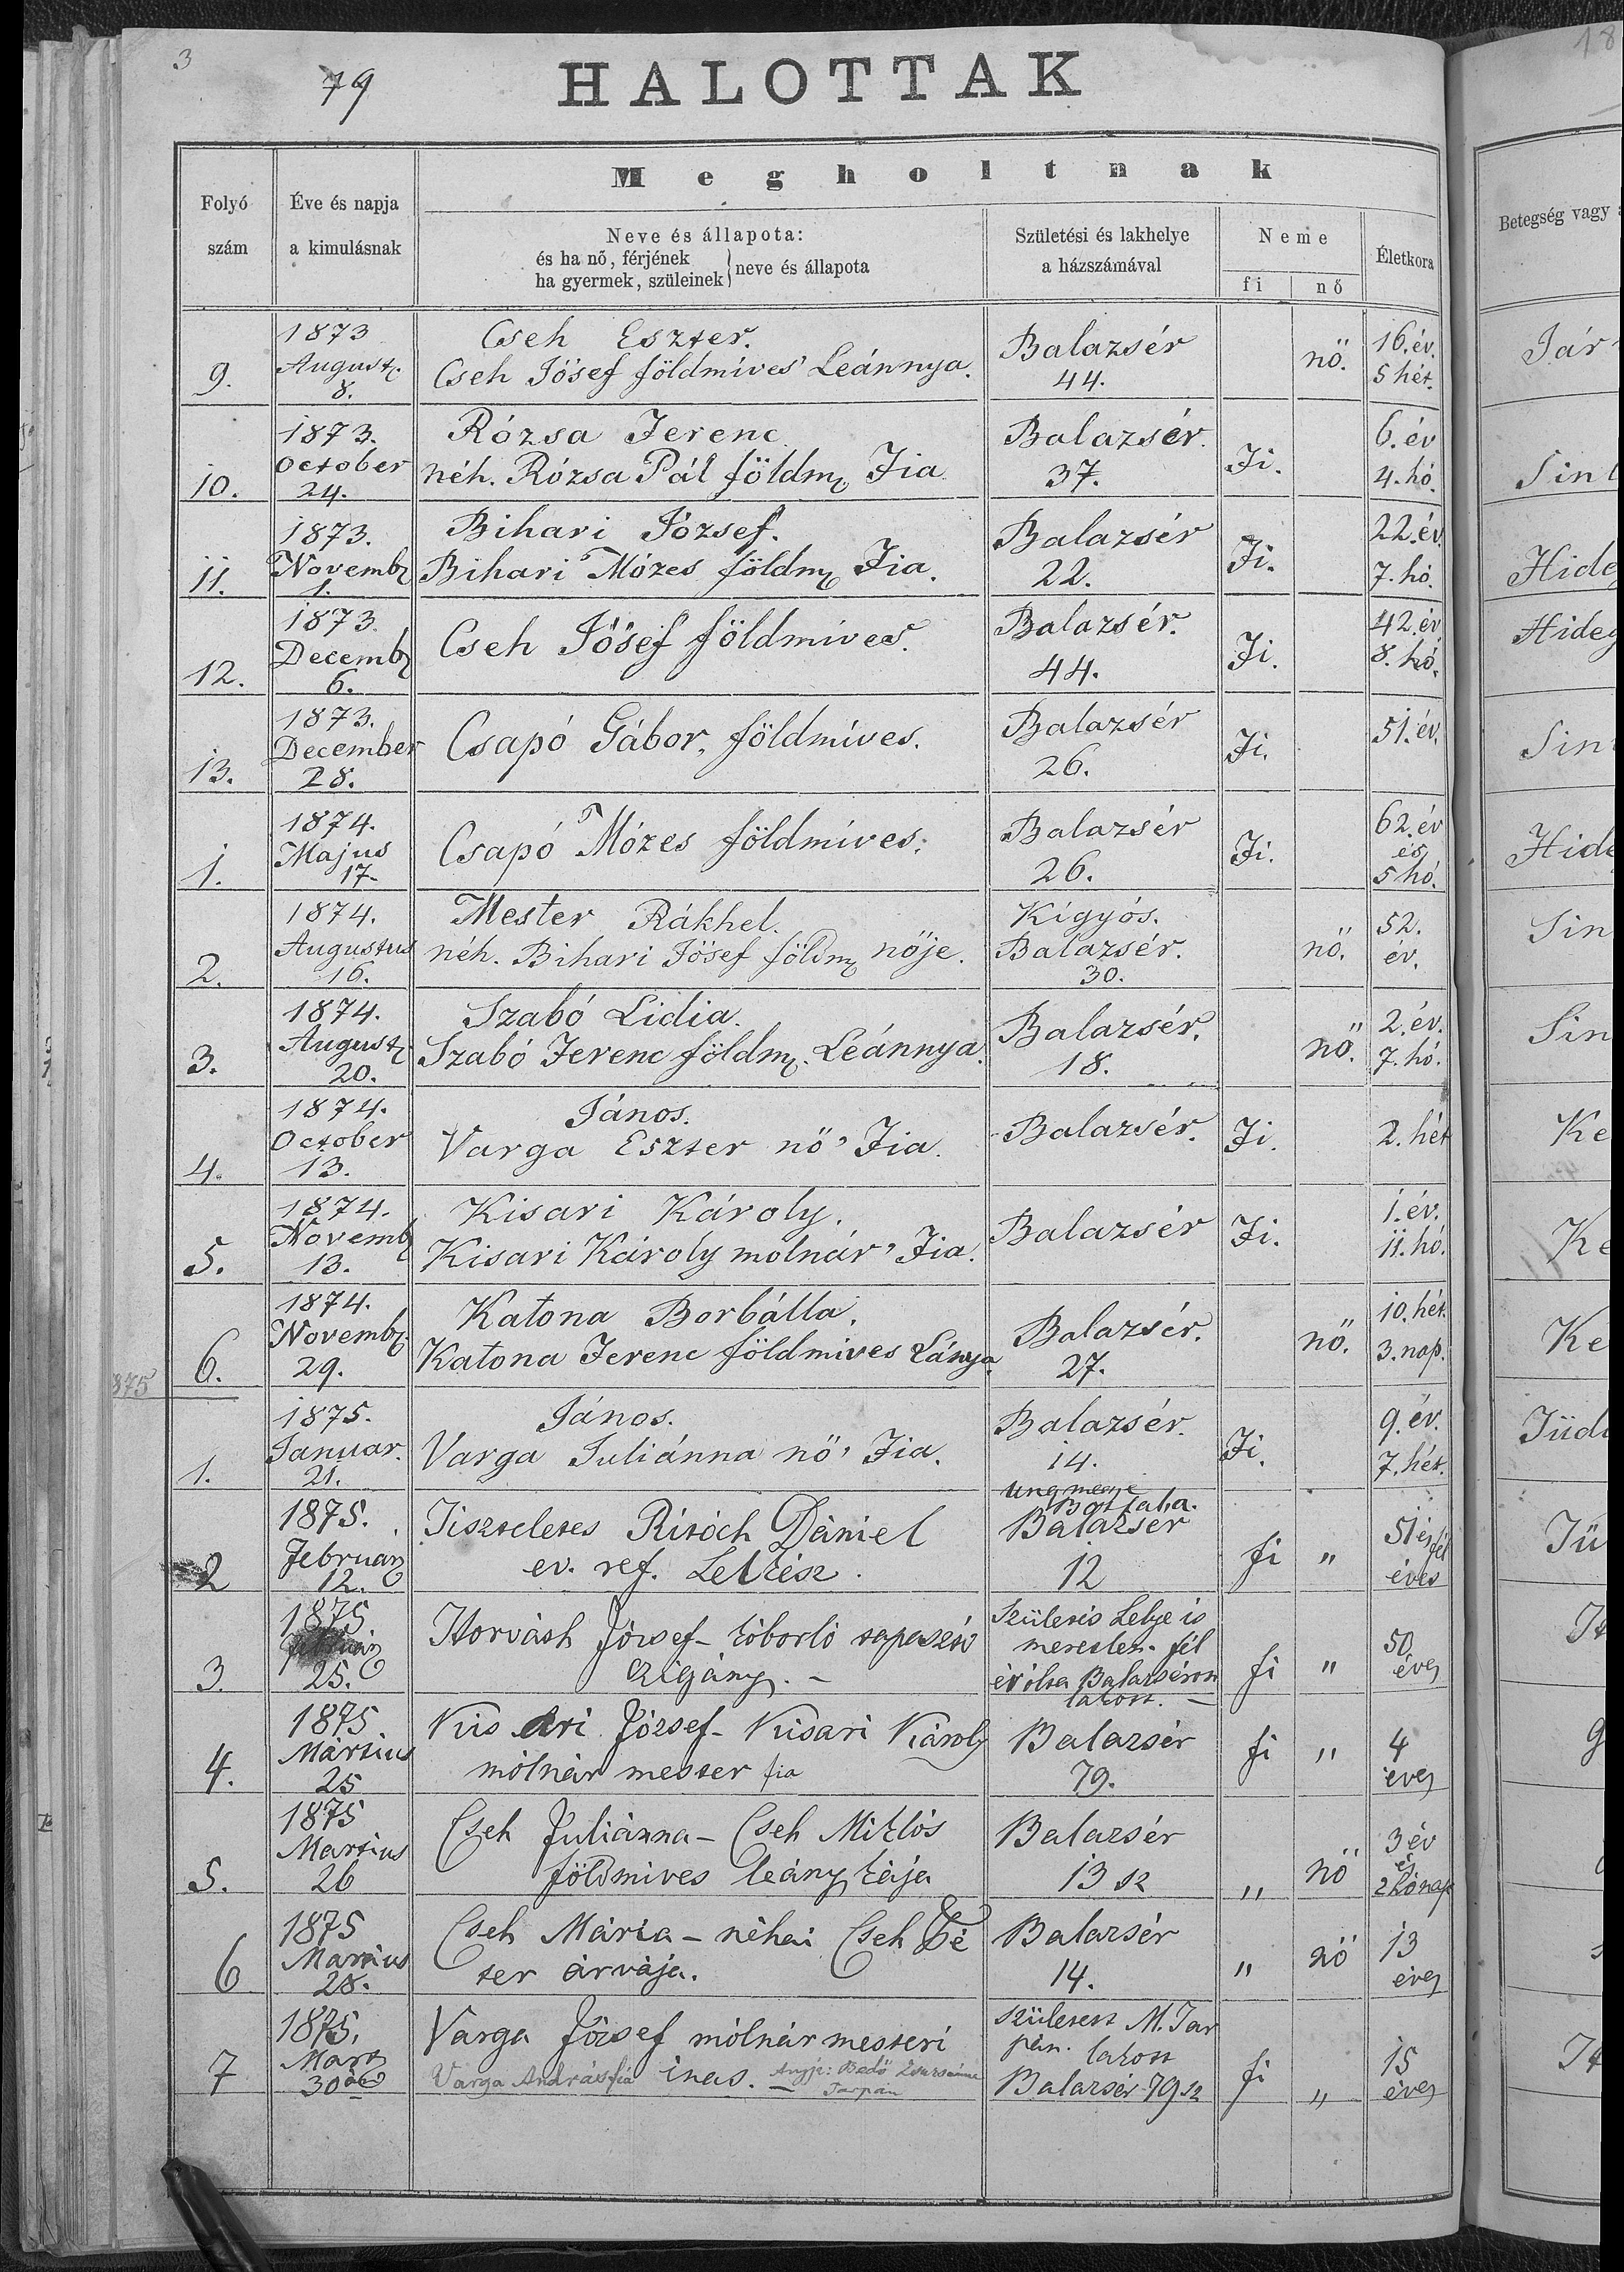 3
79
HALOTTAK
Megholtnak
Folyó szám
Éve és napja a kimulásnak
Neve és állapota:
és ha nő, férjének
ha gyermek, szüleinek } neve és állapota
Születési és lakhelye a házszámával
Neme
fi nő
Életkora
Betegség vagy
9. 1873 August. 8. Cseh Eszter. Balazsér 44. nö. 16. év. 5 hét.
Cseh Jósef földmives Leánnya.
10. 1873. October 24. Rózsa Ferenc Balazsér. 37. Fi. 6. év 4. hó.
néh. Rózsa Pál földm. Fia
11. 1873. Novemb. 1. Bihari József. Balazsér 22. Fi. 22. év. 7. hó.
Bihari Mózes földm. Fia.
12. 1873. Decemb. 6. Cseh Jósef földmíves. Balazsér. 44. Fi. 42. év 8. hó.
13. 1873. December 28. Csapó Gábor, földmíves. Balazsér 26. Fi. 51. év.
1. 1874. Majus 17. Csapó Mózes földmíves. Balazsér 26. Fi. 62. év és 5 hó.
2. 1874. Augustus 16. Mester Rákhel. Kígyós. Balazsér. 30. nö. 52. év.
néh. Bihari Jósef földm. nöje.
3. 1874. August. 20. Szabó Lidia. Balazsér. 18. nö. 2. év. 7. hó.
Szabó Ferenc földm. Leánnya.
4. 1874. October 13. János. Balazsér. Fi. 2. hét
Varga Eszter nö' Fia.
5. 1874. Novemb. 13. Kisari Károly. Balazsér Fi. 1. év. 11. hó.
Kisari Károly molnár' Fia.
6. 1874. Novemb. 29. Katona Borbálla. Balazsér. 27. nö. 10. hét. 3. nap.
Katona Ferenc földmives Lánya.
1875
1. 1875. Januar. 21. János. Balazsér. 14. Fi. 9. év. 7. hét.
Varga Juliánna nö' Fia.
2 1875. Február 12. Tiszteletes Ritóch Dániel Ungmegye Balazsér 12 fi " 51 és fél éves
ev. ref. Lelkész.
3. 1875 25. Horváth József – kóborló
czigány. – Születés helye is
meretlen fél
év ólta Balazséron
lakott. – fi " 50 éves
4. 1875. Mártius 25 Kis Ari József – Kisari Károly Balazsér 79. fi " 4 éves
mólnár mester fia
5. 1875 Martius 26 Cseh Juliánna – Cseh Miklós Balazsér 13 sz " nö 3 év és 2 hónap
földmives leánykája
6 1875 Martius 28. Cseh Mária – néhai Cseh Pé Balazsér 14. " nö 13 éves
ter árvája.
7 1875. Mart. 30án Varga József mólnár mesteri született M. Tar
pán. lakott
Balazsér 79 sz fi " 15 éves
Varga András fia inas. – Anyja: Bedő Zsuzsánna
Tarpán